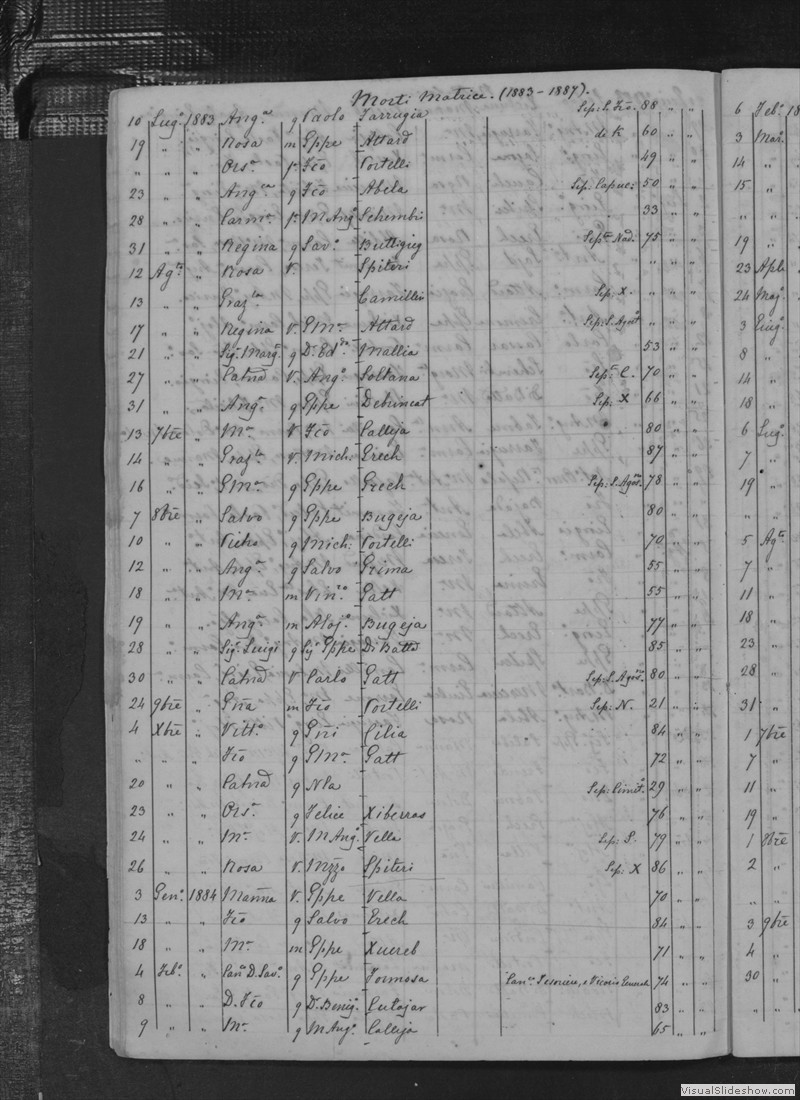 Morti Matrice. (1883-1887).
10 Lugº 1883 Angª g Paolo Farrugia Sep: S. Fcō. 88 " "
19 " " Rosa m Gppe Attard de K 60 " "
" " " Orsª Fcō Portelli 49 " "
23 " " Angª g Fcō Abela Sep. Capuc: 50 " "
28 " " Carmª M Angº Schembri 33 " "
31 " " Regina g Savº Buttigieg Sepª Nad. 75 " "
12 Agº " Rosa V. Spiteri " " "
13 " " Grazª Camilleri Sep. X. " " "
17 " " Regina V. GMª Attard Sep: S. Agost " " "
21 " " Sigª Margª g Dr Edº Mallia 53 " "
27 " " Catnā V. Angº Soltana Sepª C. 70 " "
31 " " Angª g Gppe Debrincat Sep. X 66 " "
13 7bre " Mª V Fcō Calleja 80 " "
14 " " Grazª V. Mich: Grech 87 " "
16 " " GMª g Gppe Grech Sep: S. Agosº 78 " "
7 8bre " Salvo g Gppe Bugeja 80 " "
10 " " Pietro g Mich: Portelli 70 " "
12 " " Angª g Salvo Grima 55 " "
18 " " Mª m Vinº Gatt 55 " "
19 " " Angª m Alojº Bugeja 77 " "
28 " " Sigr Luigi g Sigr Gppe Di Batta 85 " "
30 " " Catnā V Carlo Gatt Sep: S. Agosº 80 " "
24 9bre " Gña m Fcō Portelli Sep: N. 21 " "
4 Xbre " Vittª g Gñi Cilia 84 " "
" " " Fcō g GMª Gatt 72 " "
20 " " Catnā g Nla Sep: Cimitº 29 " "
23 " " Orsª g Felice Xiberras 76 " "
24 " " Mª V. M Angº Vella Sep: S. 79 " "
26 " " Rosa V. Nzzo Spiteri Sep: X 86 " "
3 Genº 1884 Marina V. Gppe Vella 70 " "
13 " " Fcō g Salvo Grech 84 " "
18 " " Mª m Gppe Xuereb 71 " "
4 Febº " Canº D. Savº g Gppe Formosa Canco Tesoriere, e Vicario Generale 74 " "
8 " " D. Fcō g Dr Benigº Cutajar 83 " "
9 " " Mª g M Angº Calleja 65 " "
6 Febº 18
3 Marº
14 "
15 "
" "
19 "
23 Aple
24 Magº
3 Giugº
8 "
14 "
18 "
6 Lugº
7 "
19 "
" "
5 Agº
7 "
11 "
18 "
23 "
28 "
31 "
1 7bre
7 "
11 "
19 "
1 8bre
2 "
" "
3 9bre
4 "
30 "
" "
VisualSlideshow.com